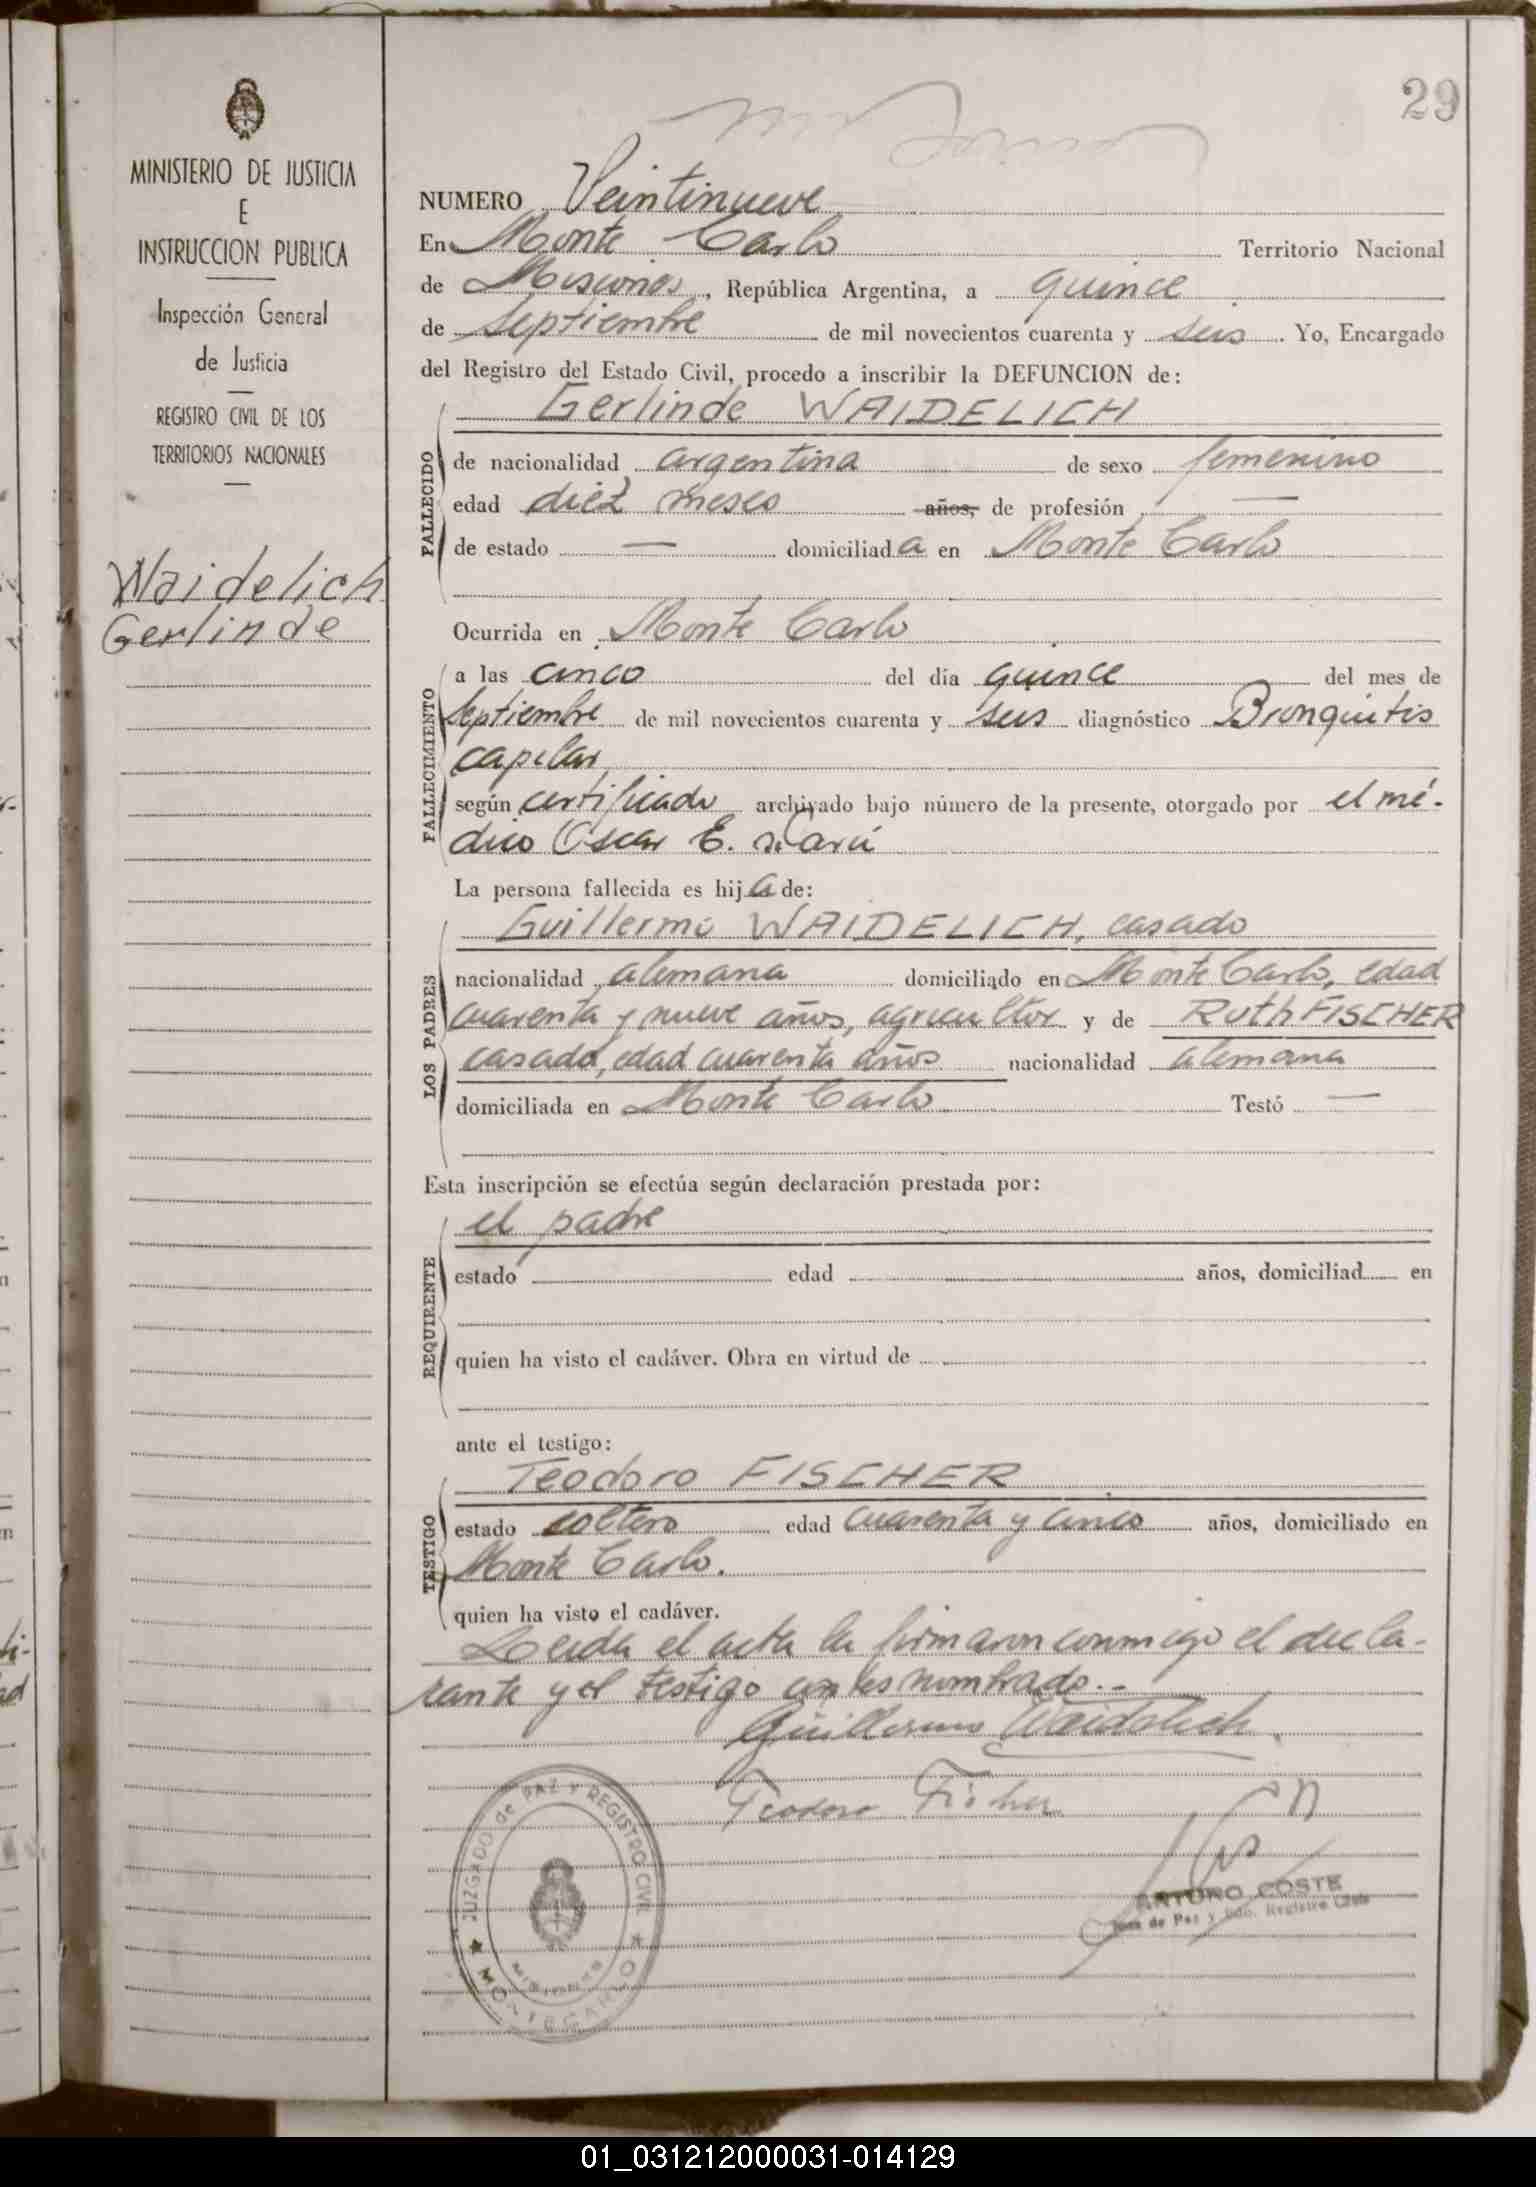 29
MINISTERIO DE JUSTICIA
E
INSTRUCCION PUBLICA
Inspección General
de Justicia
REGISTRO CIVIL DE LOS
TERRITORIOS NACIONALES
Waidelich
Gerlinde
NUMERO Veintinueve
En Monte Carlo Territorio Nacional
de Misiones, República Argentina, a quince
de septiembre de mil novecientos cuarenta y seis. Yo, Encargado
del Registro del Estado Civil, procedo a inscribir la DEFUNCION de:
Gerlinde WAIDELICH
FALLECIDO
de nacionalidad argentina de sexo femenino
edad diez meses años, de profesión —
de estado — domiciliada en Monte Carlo
Ocurrida en Monte Carlo
FALLECIMIENTO
a las cinco del dia quince del mes de
septiembre de mil novecientos cuarenta y seis diagnóstico Bronquitis
capilar
según certificado archivado bajo número de la presente, otorgado por el mé-
dico Oscar E.
La persona fallecida es hija de:
LOS PADRES
Guillermo WAIDELICH, casado
nacionalidad alemana domiciliado en Monte Carlo, edad
cuarenta y nueve años, agricultor y de Ruth FISCHER
casada, edad cuarenta años nacionalidad alemana
domiciliada en Monte Carlo Testó —
Esta inscripción se efectúa según declaración prestada por:
REQUIRENTE
el padre
estado edad años, domiciliad en
quien ha visto el cadáver. Obra en virtud de
ante el testigo:
TESTIGO
Teodoro FISCHER
estado soltero edad cuarenta y cinco años, domiciliado en
Monte Carlo.
quien ha visto el cadáver.
Leida el acta la firmaron conmigo el decla-
rante y el testigo antes nombrado.-
Guillermo Waidelich.
Teodoro Fischer
JUZGADO de PAZ Y REGISTRO CIVIL
MISIONES
★ MONTECARLO ★
ARTURO COSTE
Juez de Paz y Edo. Registro Civil
01_031212000031-014129